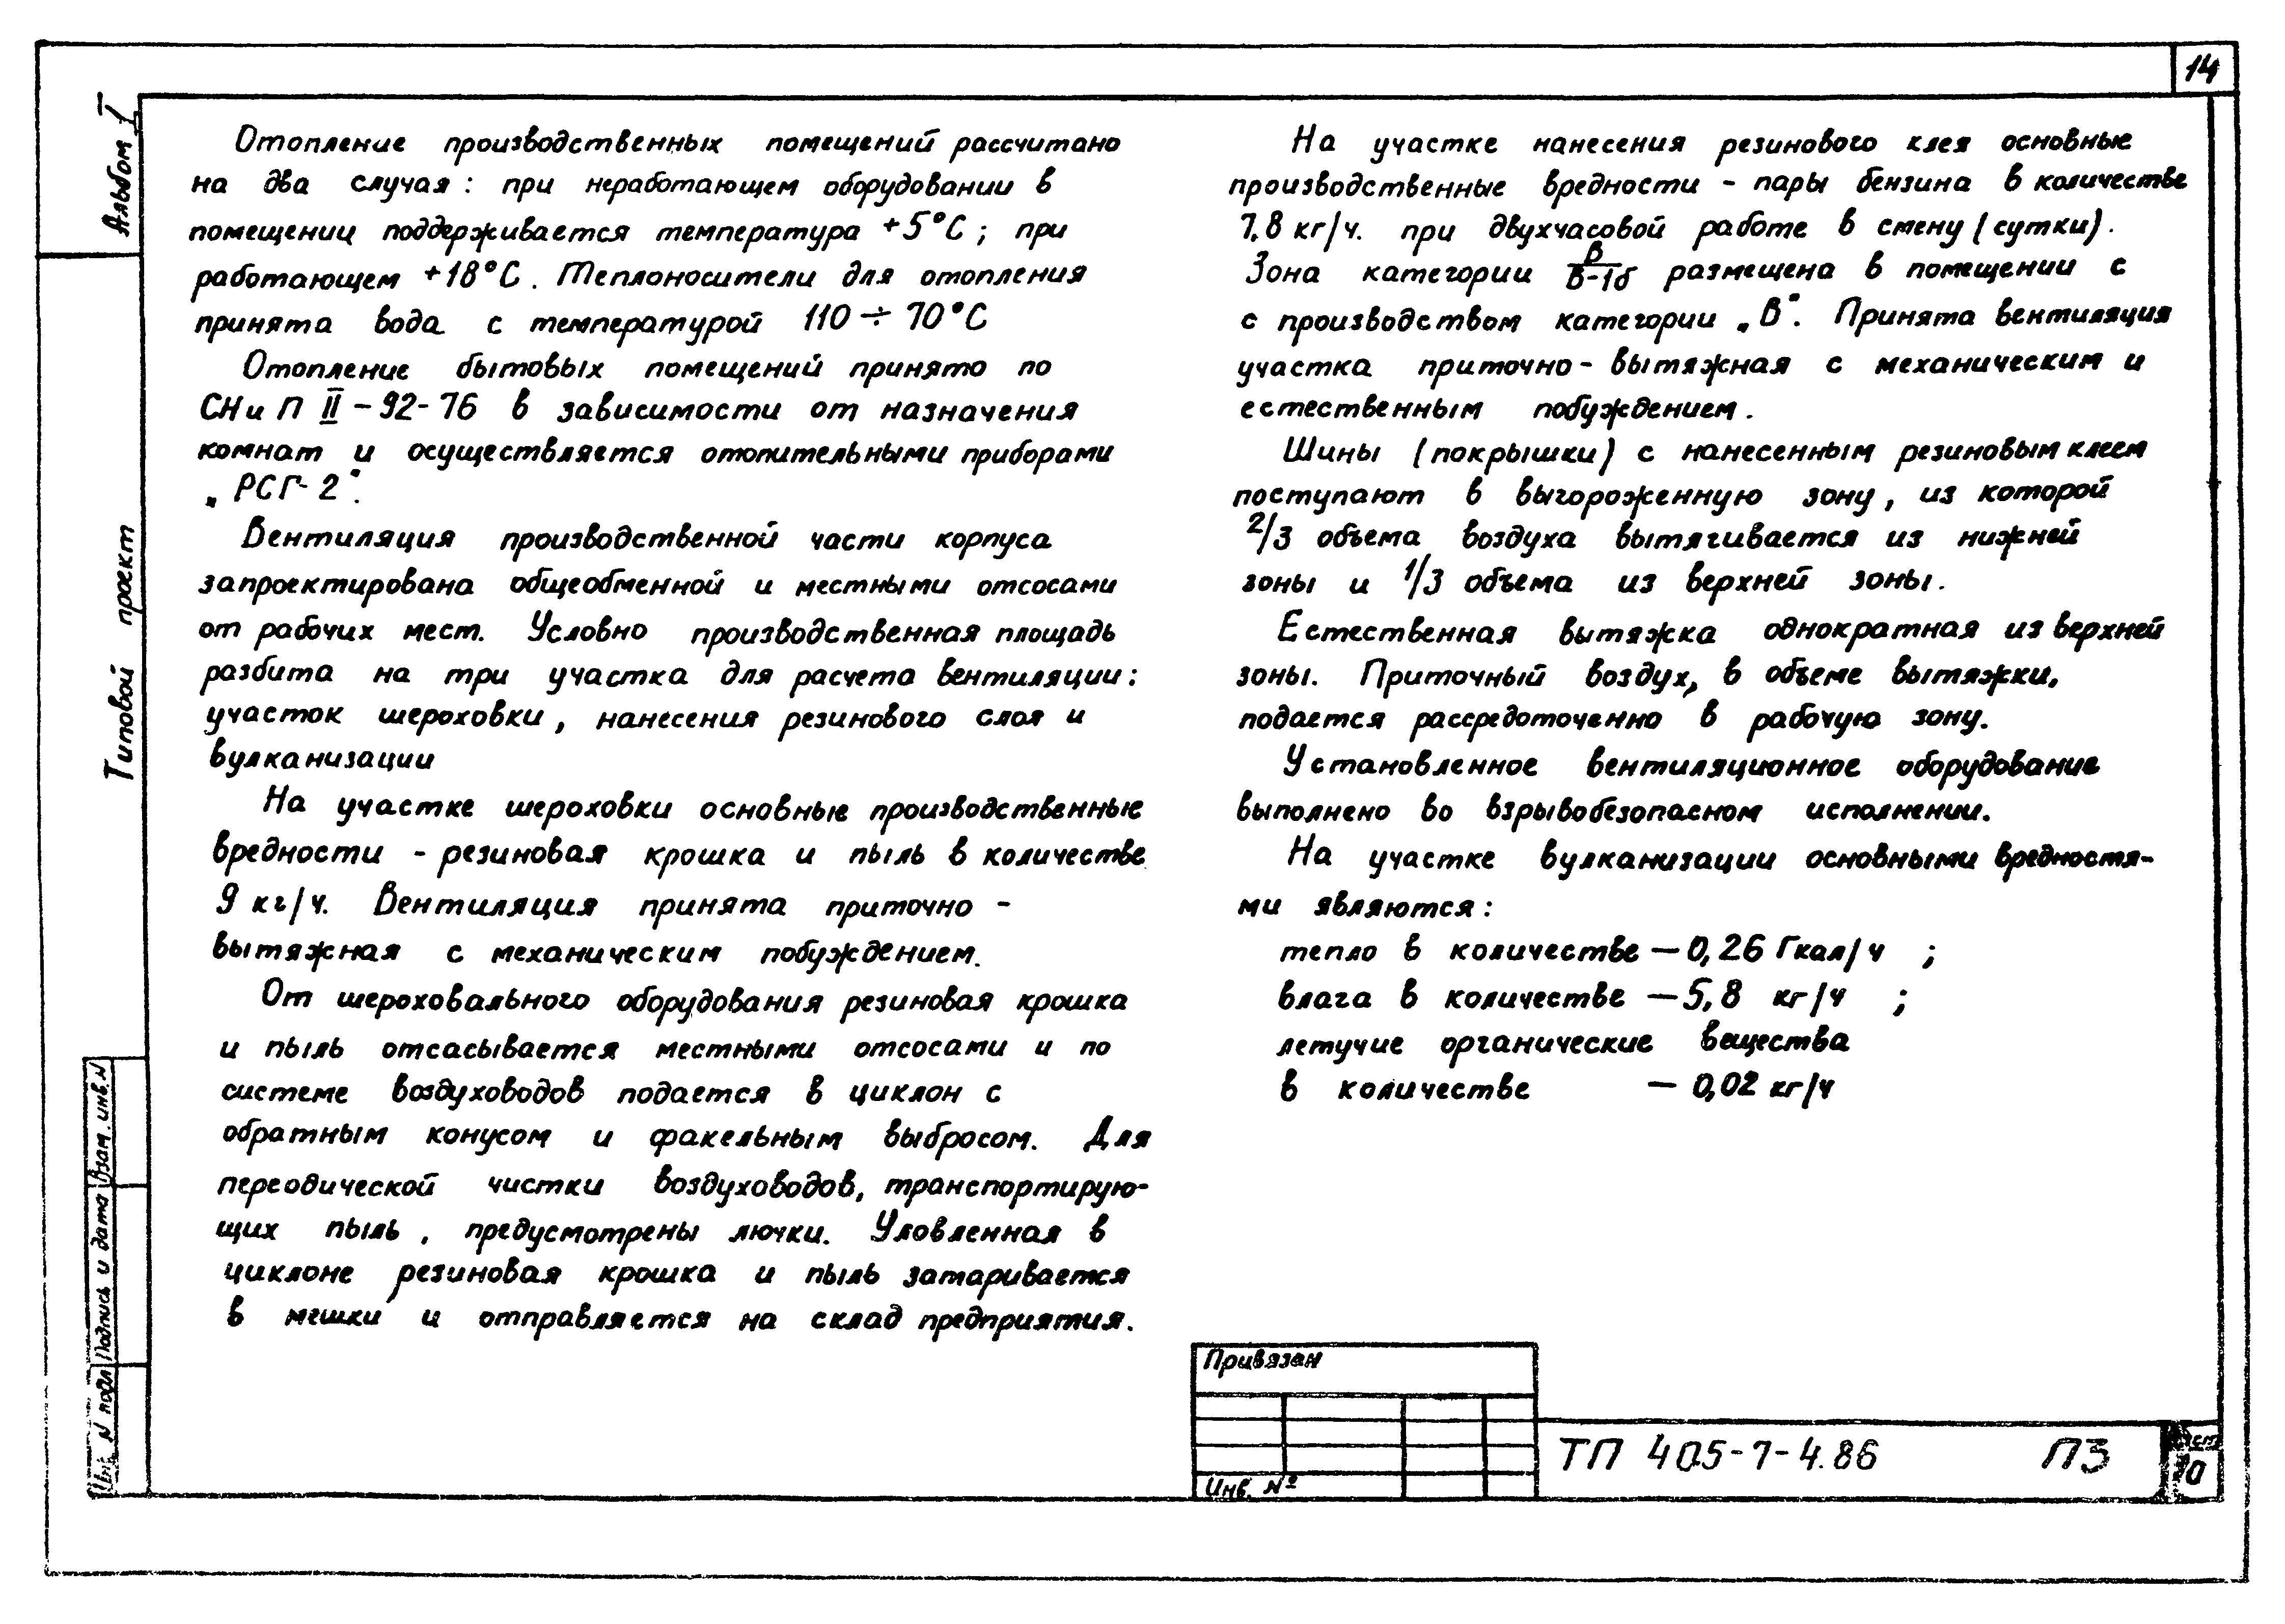 14
Альбом I
Типовой проект
Отопление производственных помещений рассчитано
на два случая: при неработающем оборудовании в
помещении поддерживается температура +5°С; при
работающем +18°С. Теплоносители для отопления
принята вода с температурой 110÷70°С
Отопление бытовых помещений принято по
СНиП II-92-76 в зависимости от назначения
комнат и осуществляется отопительными приборами
„РСГ-2".
Вентиляция производственной части корпуса
запроектирована общеобменной и местными отсосами
от рабочих мест. Условно производственная площадь
разбита на три участка для расчета вентиляции:
участок шероховки, нанесения резинового слоя и
вулканизации
На участке шероховки основные производственные
вредности - резиновая крошка и пыль в количестве
9 кг/ч. Вентиляция принята приточно -
вытяжная с механическим побуждением.
От шероховального оборудования резиновая крошка
и пыль отсасывается местными отсосами и по
системе воздуховодов подается в циклон с
обратным конусом и факельным выбросом. Для
переодической чистки воздуховодов, транспортирую-
щих пыль, предусмотрены лючки. Уловленная в
циклоне резиновая крошка и пыль затаривается
в мешки и отправляется на склад предприятия.
На участке нанесения резинового клея основные
производственные вредности - пары бензина в количестве
7,8 кг/ч. при двухчасовой работе в смену (сутки).
Зона категории В/В-1б размещена в помещении с
с производством категории „В". Принята вентиляция
участка приточно-вытяжная с механическим и
естественным побуждением.
Шины (покрышки) с нанесенным резиновым клеем
поступают в выгороженную зону, из которой
2/3 объема воздуха вытягивается из нижней
зоны и 1/3 объема из верхней зоны.
Естественная вытяжка однократная из верхней
зоны. Приточный воздух, в объеме вытяжки,
подается рассредоточенно в рабочую зону.
Установленное вентиляционное оборудование
выполнено во взрывобезопасном исполнении.
На участке вулканизации основными вредностя-
ми являются:
тепло в количестве — 0,26 Гкал/ч ;
влага в количестве — 5,8 кг/ч ;
летучие органические вещества
в количестве — 0,02 кг/ч
Взам. инв. N
Подпись и дата
Инв. N подл
Привязан
Инв. №
ТП 405-7-4.86 ПЗ
Лист
10